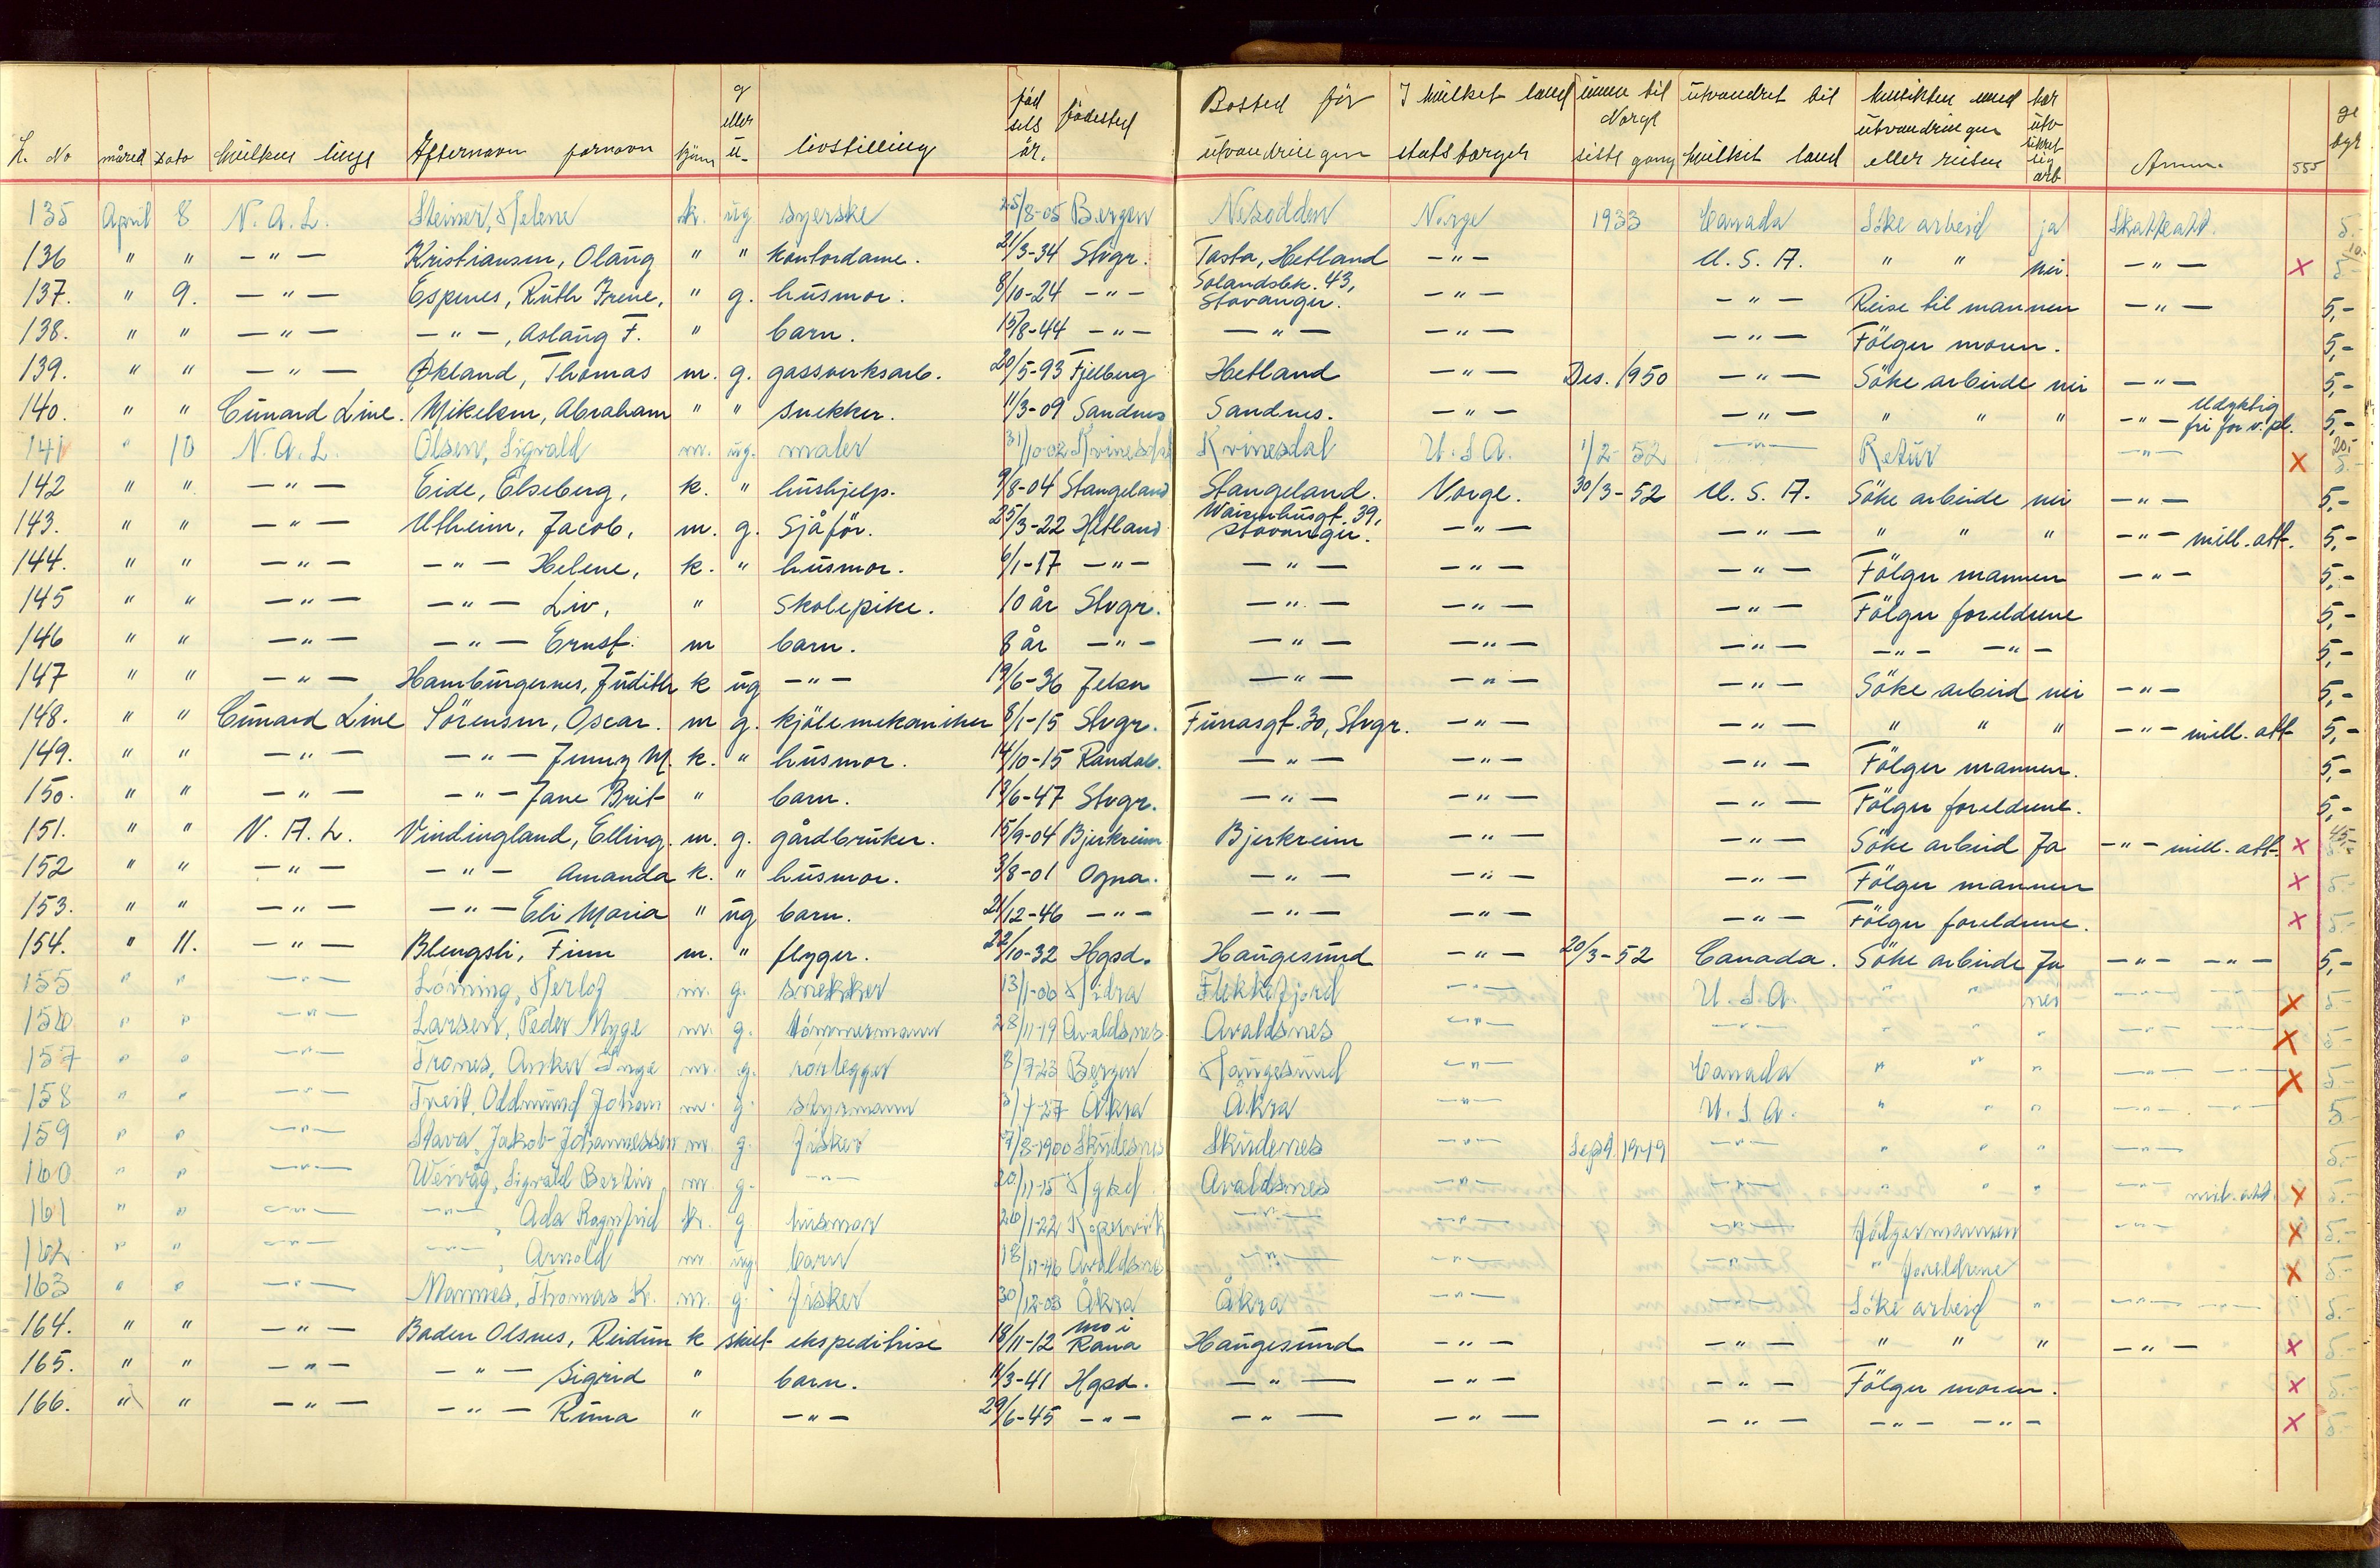 L. No måned Dato hvilken linje Efternavn fornavn kjønn g eller u- livstilling fødsels år. fødested Bosted før utvandringen I hvilket land statsborger inne til Norge siste gang utvandret til hvilket land hensikten med utvandringen eller reisen har utv sikret sig arb Anm. 555 gebyr
135 April 8 N.A.L. Steiner, Helene k. ug syerske 25/8-05 Bergen Nesodden Norge 1933 Canada Söke arbeid ja Skatteatt. 5.-
136 " " -"- Kristiansen, Olaug " " kontordame. 21/3-34 Stvgr. Tasta, Hetland -"- U.S.A. " " nei. -"- x 10.- 5-
137. " 9. -"- Espenes, Ruth Irene, " g. husmor. 8/10-24 -"- Solandsbk. 43, Stavanger. -"- -"- Reise til mannen -"- 5,-
138. " " -"- -"-, Aslaug F. " barn. 15/8-44 -"- -"- -"- -"- Fölger moren. 5,-
139. " " -"- Økland, Thomas m. g. gassverksarb. 20/5-93 Fjelberg Hetland -"- Des. 1950 -"- Söke arbeide nei -"- 5,-
140. " " Cunard Line. Mikelsen, Abraham " " snekker. 11/3-09 Sandnes Sandnes. -"- -"- " " " -"- Udyktig fri for v.pl. 5,-
141 " 10 N.A.L. Olsen, Sigvald m. ug. maler 31/10-02 Kvinesdal Kvinesdal U.S.A. 1/2-52 -"- Retur -"- x 20,- 5.-
142 " " -"- Eide, Elseberg, k. " hushjelp. 9/8-04 Stangeland Stangeland. Norge. 30/3-52 U.S.A. Söke arbeide nei -"- 5,-
143. " " -"- Utheim, Jacob, m. g. Sjåför. 25/3-22 Hetland Waisenhusgt. 39, Stavanger. -"- -"- " " " -"- mill. att. 5,-
144. " " -"- -"- Helene, k. " husmor. 6/1-17 -"- -"- -"- -"- Fölger mannen -"- 5,-
145 " " -"- -"- Liv, " Skolepike. 10 år Stvgr. -"- -"- -"- Fölger foreldrene 5,-
146 " " -"- -"- Ernst. m barn. 8 år -"- -"- -"- -"- -"- -"- 5,-
147 " " -"- Hamburgernes, Judith k ug -"- 19/6-36 Jelsa -"- -"- -"- Söke arbeid nei -"- 5,-
148. " " Cunard Line Sörensen, Oscar. m g. kjölemekaniker 8/1-15 Stvgr. Furrasgt. 30, Stvgr. -"- -"- " " " -"- mill. att 5,-
149. " " -"- -"- Jenny M. k. " husmor. 14/10-15 Randab. -"- -"- -"- Fölger mannen. 5,-
150. " " -"- -"- Jane Brit " barn. 13/6-47 Stvgr. -"- -"- -"- Fölger foreldrene. 5,-
151. " " N.A.L. Vindingland, Elling. m. g. gårdbruker. 15/9-04 Bjerkreim Bjerkreim -"- -"- Söke arbeid Ja -"- mill. att. x 45,-
152 " " -"- -"- Amanda k. " husmor. 3/8-01 Ogna. -"- -"- -"- Fölger mannen x 5.-
153. " " -"- -"- Eli Maria " ug barn. 21/12-46 -"- -"- -"- -"- Fölger foreldrene. x 5.-
154. " 11. -"- Blengsli, Finn m. " flyger. 22/10-32 Hgsd. Haugesund -"- 20/3-52 Canada. Söke arbeide Ja -"- -"- 5,-
155 " " -"- Lönning, Herlof m. g. snekker 13/1-06 Hidra Flekkefjord -"- U.S.A. " " nei -"- -"- x 5-
156 " " -"- Larsen, Peder Myge m. g. tömmermann 28/11-19 Avaldsnes Avaldsnes -"- -"- " " " -"- -"- x 5-
157 " " -"- Trones, Anker Inge m. g. rorlegger 8/7-23 Bergen Haugesund -"- Canada " " " -"- -"- x 5-
158 " " -"- Oddmund Johan m. g. styrmann 3/7-27 Åkra Åkra -"- U.S.A. " " " -"- -"- 5-
159 " " -"- Stava, Jakob Johannessen m. g. fisker 7/8-1900 Skudesnes Skudenes -"- Sept 1949 -"- " " " -"- 5.-
160 " " -"- Sigvald Bertin m. g. -"- 20/11-15 Hgsd Avaldsnes -"- -"- " " " -"- mil. att. x 5.-
161 " " -"- -"-, Ada Ragnfrid k. g husmor 26/1-22 Kopervik -"- -"- -"- Fölger mannen -"- x 5.-
162 " " -"- -"-, Arnold m ug barn 18/11-46 Avaldsnes -"- -"- -"- " foreldrene x 5.-
163 " " -"- Mannes, Thomas K. m. g. fisker 30/12-03 Åkra Åkra -"- Söke arbeid " -"- -"- 5.-
164. " " -"- Baden Olsnes, Reidun k skilt ekspeditrise 18/11-12 Mo i Rana Haugesund -"- -"- " " " -"- x 5.-
165. " " -"- -"- Sigrid " barn. 11/3-41 Hgsd. -"- -"- -"- Fölger moren. x 5.-
166. " " -"- -"- Runa " -"- 29/6-45 -"- -"- -"- -"- -"- -"- x 5.-